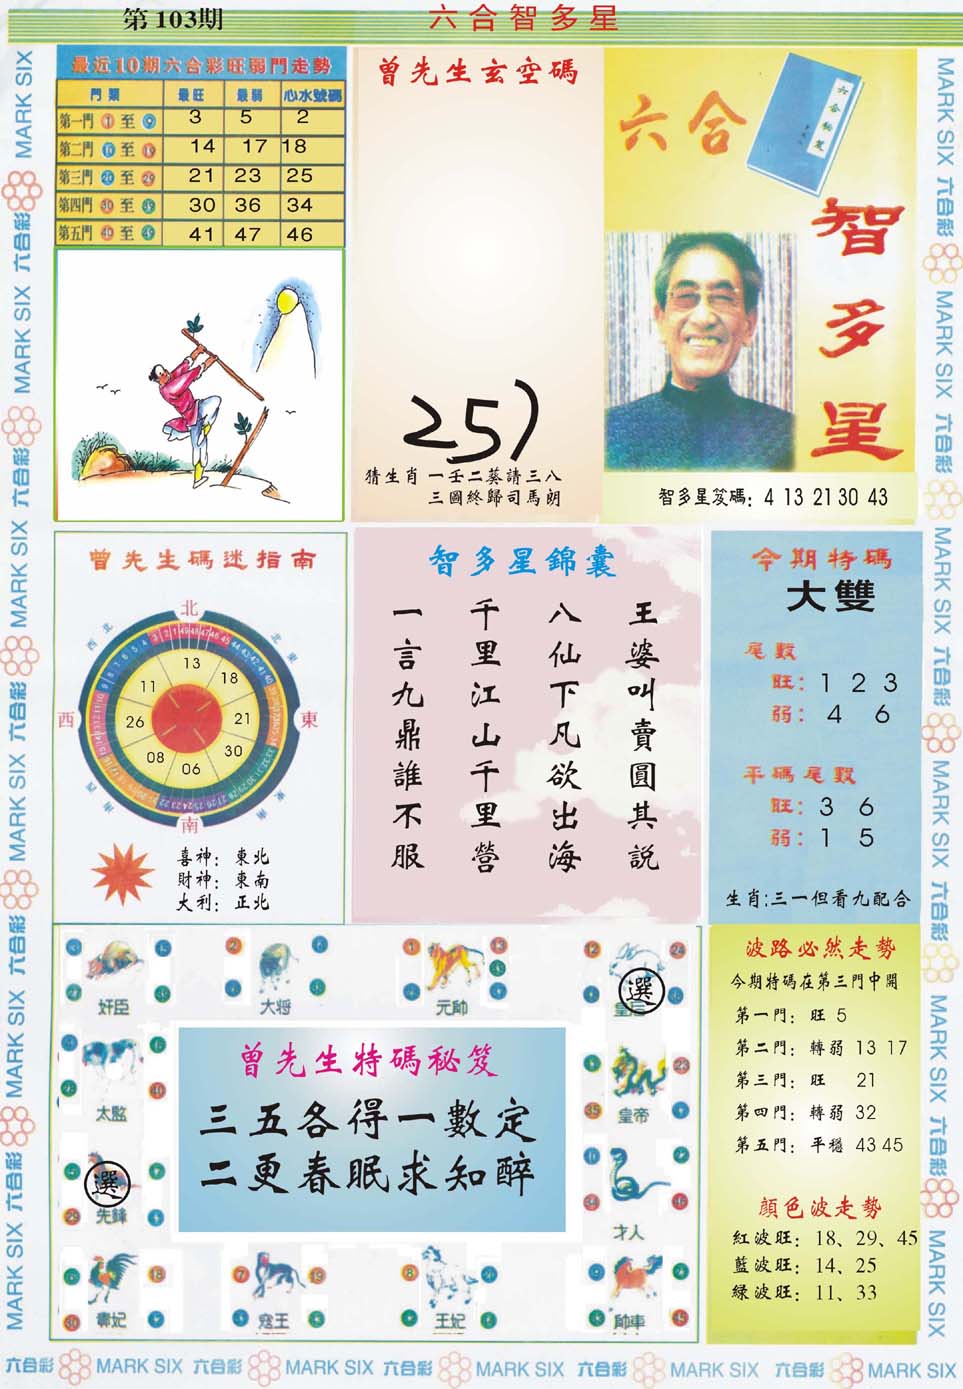 第103期
六合智多星
最近10期六合彩旺弱門走勢
門類 最旺 最弱 心水號碼
第一門 1 至 9 3 5 2
第二門 10 至 19 14 17 18
第三門 20 至 29 21 23 25
第四門 30 至 39 30 36 34
第五門 40 至 49 41 47 46
曾先生玄空碼
257
猜生肖 一壬二葵請三八
三國終歸司馬朗
六合
六合秘笈
智多星
智多星笈碼: 4 13 21 30 43
曾先生碼迷指南
北
西北
東北
西
東
西南
東南
南
13
18
21
30
06
08
26
11
喜神: 東北
財神: 東南
大利: 正北
智多星錦囊
王婆叫賣圓其說
八仙下凡欲出海
千里江山千里營
一言九鼎誰不服
今期特碼
大雙
尾數
旺: 1 2 3
弱: 4 6
平碼尾數
旺: 3 6
弱: 1 5
生肖:三一但看九配合
奸臣
大将
元帥
選
皇后
太監
皇帝
選
先鋒
才人
曾先生特碼秘笈
三五各得一數定
二更春眠求知醉
寇王
王妃
帥車
波路必然走勢
今期特碼在第三門中開
第一門: 旺 5
第二門: 轉弱 13 17
第三門: 旺 21
第四門: 轉弱 32
第五門: 平穩 43 45
顏色波走勢
紅波旺: 18、29、45
藍波旺: 14、25
綠波旺: 11、33
MARK SIX 六合彩